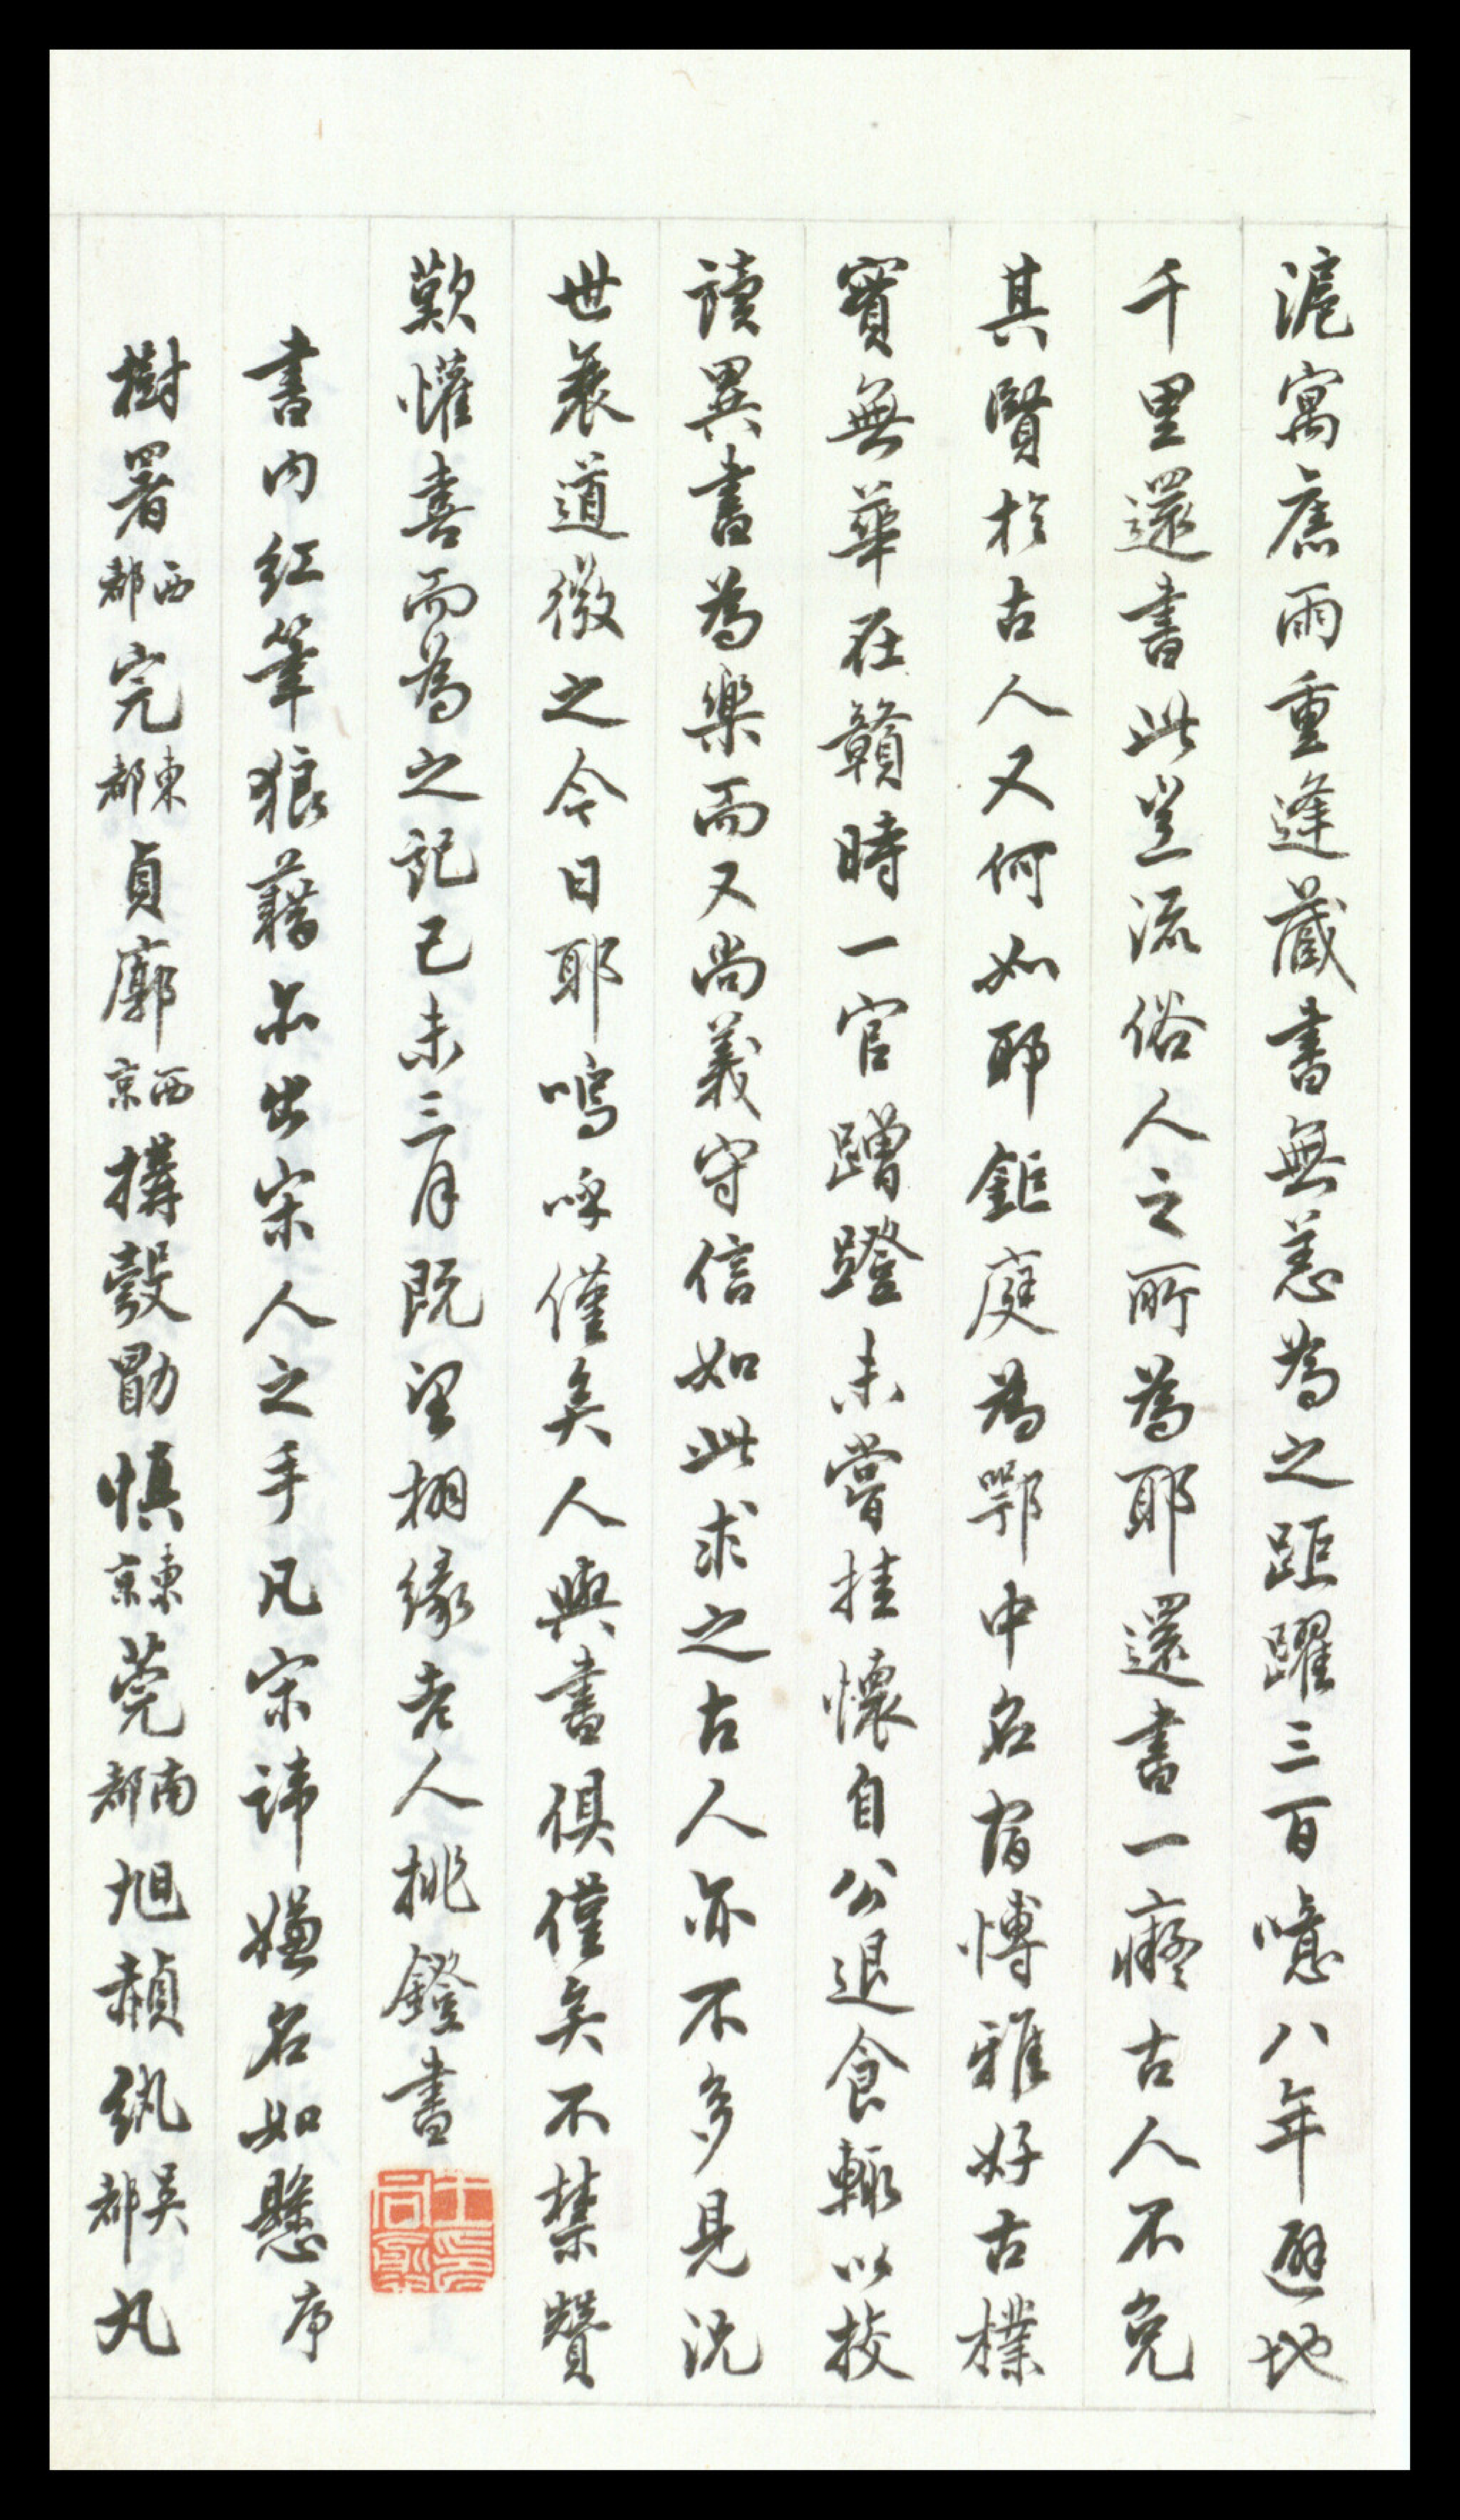 滬寓舊雨重逢藏書無恙為之距躍三百噫八年避地
千里還書此豈流俗人之所為耶還書一癡古人不免
其賢於古人又何如耶鉅庭為鄂中名宿博雅好古樸
實無華在贛時一官蹭蹬未嘗挂懷自公退食輒以校
讀異書為樂而又尚義守信如此求之古人亦不多見況
世衰道微之今日耶嗚呼僅矣人與書俱僅矣不禁贊
歎懽喜而為之記己未三月既望栩緣老人挑鐙書
書內紅筆狼藉亦出宋人之手凡宋諱嫌名如懸序
樹署西都完東都貞廓西京搆彀勖慎東京莞南都旭赬紈吳都丸